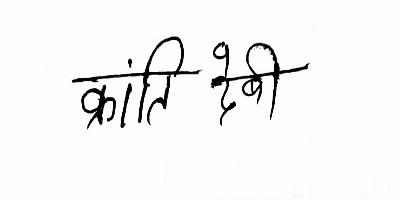 क्रांति देवी